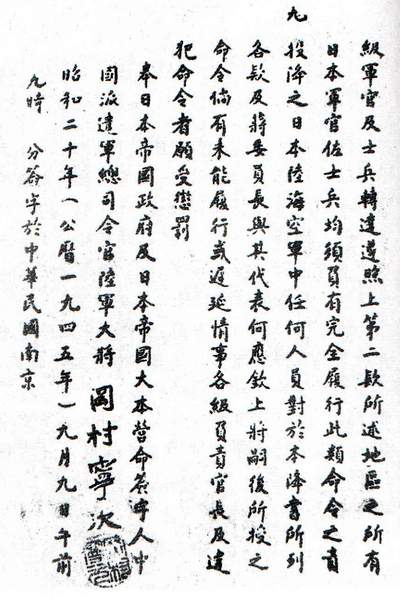 級軍官及士兵轉達遵照上第二款所述地區之所有
日本軍官佐士兵均須負有完全履行此類命令之責
九 投降之日本陸海空軍中任何人員對於本降書所列
各款及蔣委員長與其代表何應欽上將嗣後所授之
命令倘有未能履行或遲延情事各級負責官長及違
犯命令者願受懲罰
奉日本帝國政府及日本帝國大本營命簽字人中
國派遣軍總司令官陸軍大將 岡村寧次
昭和二十年(公曆一九四五年)九月九日午前
九時 分簽字於中華民國南京